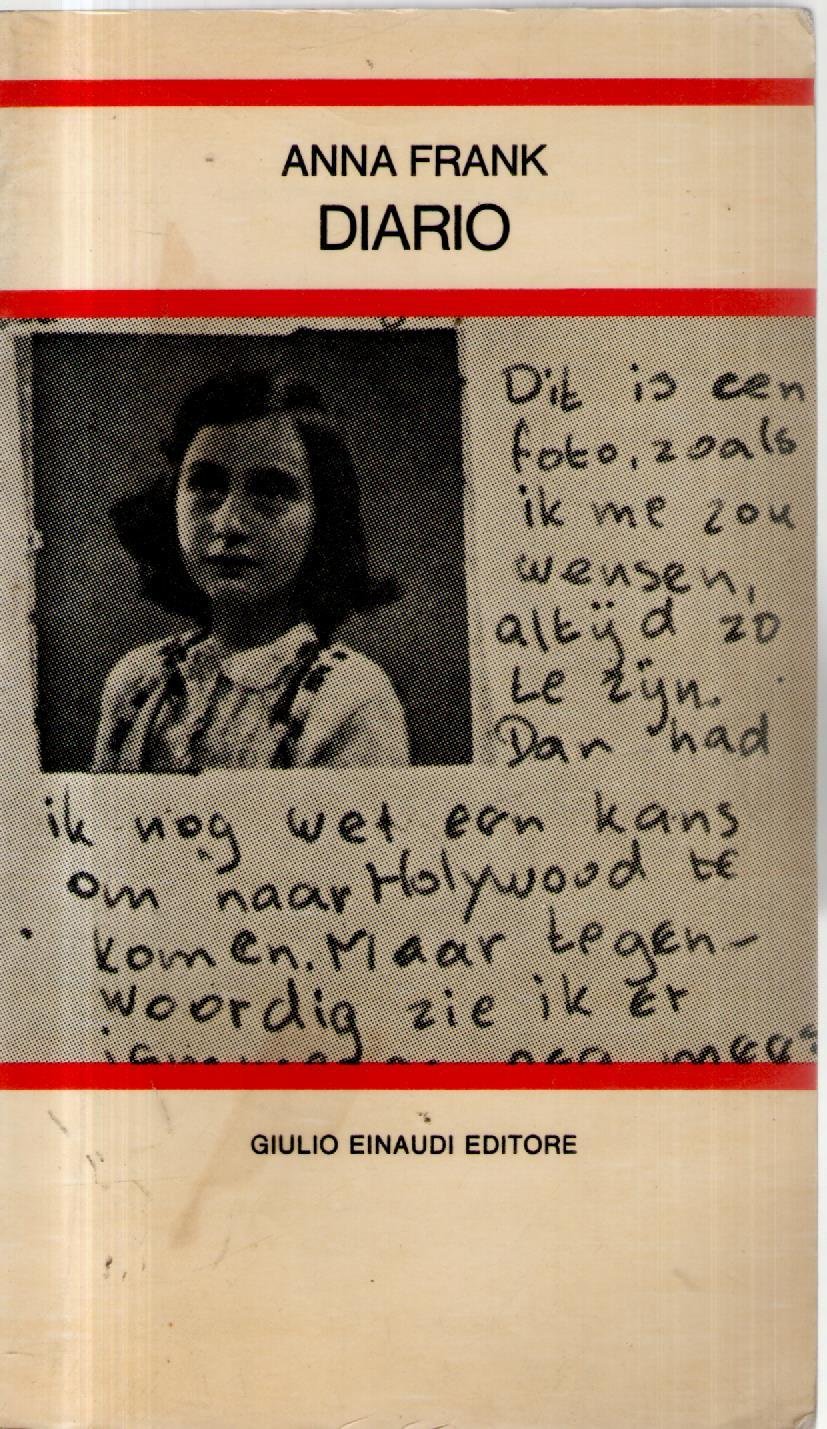 ANNA FRANK
DIARIO
Dit is een
foto, zoals
ik me zou
wensen,
altijd zo
te zijn.
Dan had
ik nog wel een kans
om naar Holywood te
komen. Maar tegen-
woordig zie ik er
GIULIO EINAUDI EDITORE